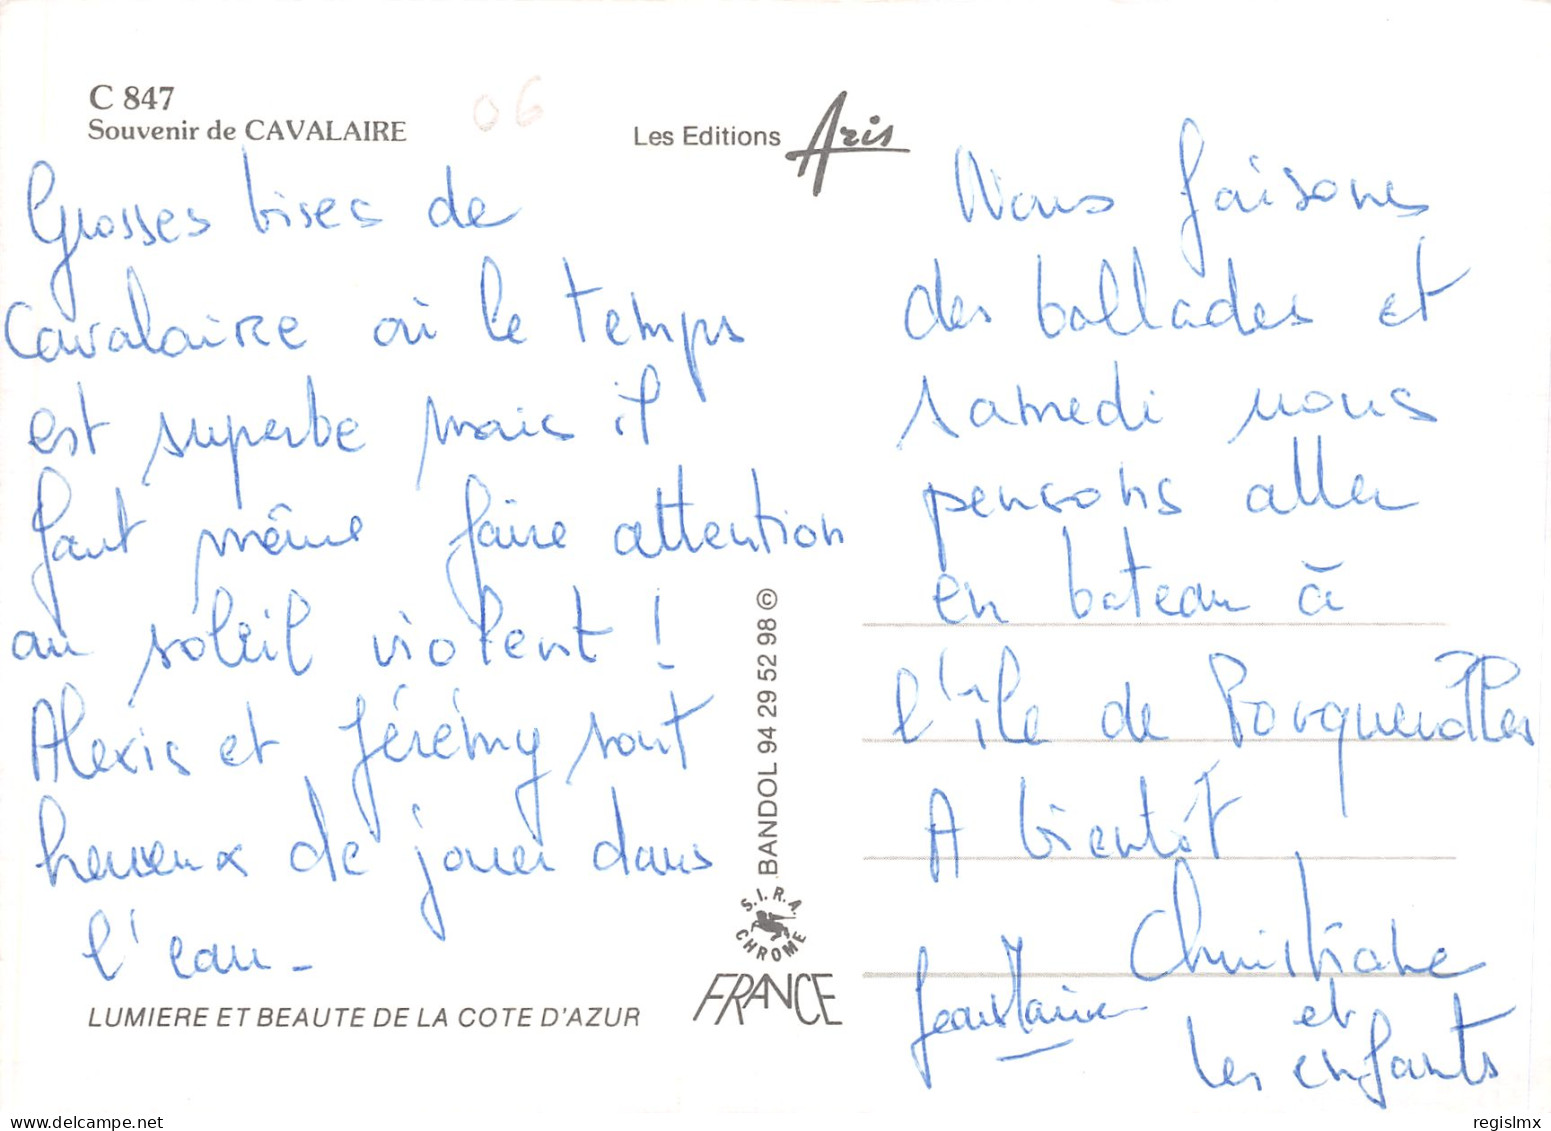 C 847
Souvenir de CAVALAIRE
06
Les Editions Aris
Grosses bises de
Cavalaire où le temps
est superbe mais il
faut même faire attention
au soleil violent !
Alexis et Jérémy sont
heureux de jouer dans
l'eau -
LUMIERE ET BEAUTE DE LA COTE D'AZUR
BANDOL 94 29 52 98 ©
S.I.R.A.
CHROME
FRANCE
Nous faisons
des ballades et
samedi nous
pensons aller
en bateau à
l'île de Porquerolles
A bientôt
Christiane
Jean Marie et
les enfants
regislmx